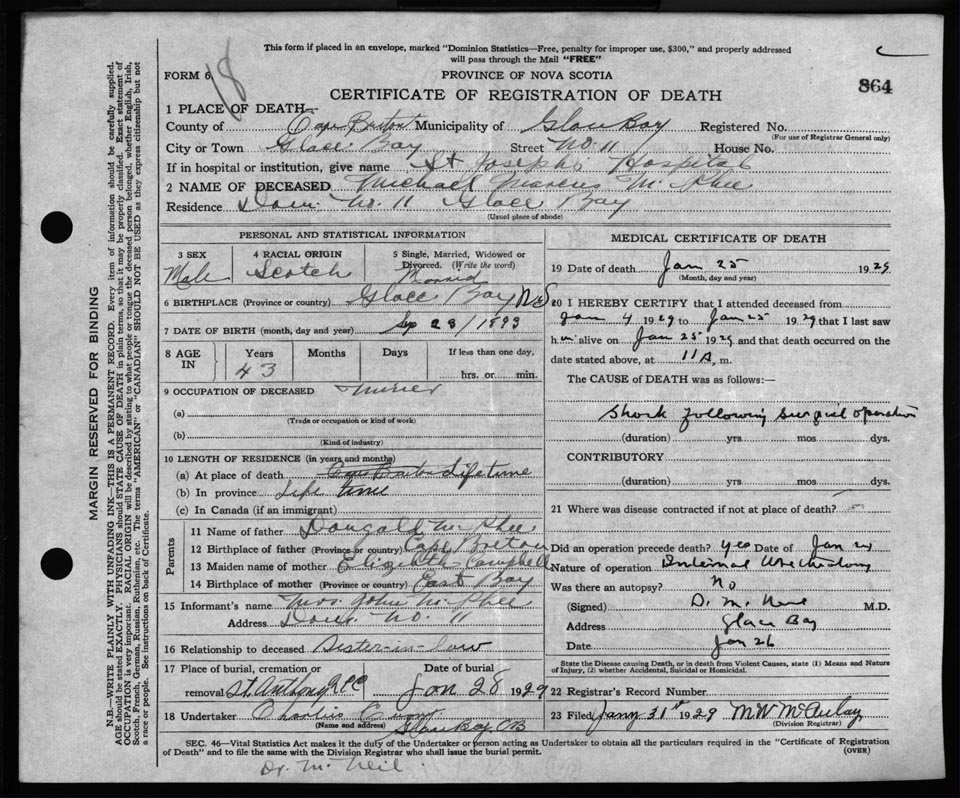 This form if placed in an envelope, marked "Dominion Statistics—Free, penalty for improper use, $300," and properly addressed
will pass through the Mail "FREE"
FORM 6. 18
PROVINCE OF NOVA SCOTIA
864
CERTIFICATE OF REGISTRATION OF DEATH
1 PLACE OF DEATH—
County of Cape Breton Municipality of Glace Bay Registered No.
(For use of Registrar General only)
City or Town Glace Bay Street No. 11 House No.
If in hospital or institution, give name St Josephs Hospital
2 NAME OF DECEASED Michael Marcus McPhee
Residence Dom. No. 11 Glace Bay
(Usual place of abode)
PERSONAL AND STATISTICAL INFORMATION
3 SEX 4 RACIAL ORIGIN 5 Single, Married, Widowed or
Divorced. (Write the word)
Male Scotch Married
6 BIRTHPLACE (Province or country) Glace Bay N.S
7 DATE OF BIRTH (month, day and year) Sep 23/1893
8 AGE IN Years Months Days If less than one day,
43 hrs. or min.
9 OCCUPATION OF DECEASED Miner
(a)
(Trade or occupation or kind of work)
(b)
(Kind of industry)
10 LENGTH OF RESIDENCE (in years and months)
(a) At place of death Cape Breton Lifetime
(b) In province Life time
(c) In Canada (if an immigrant)
Parents
11 Name of father Dougald McPhee
12 Birthplace of father (Province or country) Cape Breton
13 Maiden name of mother Elizabeth Campbell
14 Birthplace of mother (Province or country) East Bay
15 Informant's name Mrs John McPhee
Address Dom. No. 11
16 Relationship to deceased Sister-in-law
17 Place of burial, cremation or Date of burial
removal St. Anthony RCC Jan 28 1929
18 Undertaker Charlie Curry
(Name and address) Glace Bay CB
MEDICAL CERTIFICATE OF DEATH
19 Date of death Jan 25 1929
(Month, day and year)
20 I HEREBY CERTIFY that I attended deceased from
Jan 4 1929 to Jan 25 1929, that I last saw
him alive on Jan 25 1929, and that death occurred on the
date stated above, at 11 A. m.
The CAUSE OF DEATH was as follows:—
Shock following surgical operation
(duration) yrs mos dys.
CONTRIBUTORY
(duration) yrs mos dys.
21 Where was disease contracted if not at place of death?
Did an operation precede death? yes Date of Jan
Nature of operation Internal Urethrotomy
Was there an autopsy? No
(Signed) D. M. M.D.
Address Glace Bay
Date Jan 26
State the Disease causing Death, or in death from Violent Causes, state (1) Means and Nature
of Injury, (2) whether Accidental, Suicidal or Homicidal.
22 Registrar's Record Number
23 Filed Jany 31st 1929 M W McAulay
(Division Registrar)
SEC. 46—Vital Statistics Act makes it the duty of the Undertaker or person acting as Undertaker to obtain all the particulars required in the "Certificate of Registration
of Death" and to file the same with the Division Registrar who shall issue the burial permit. (OVER)
Dr. McNeil.
MARGIN RESERVED FOR BINDING
N.B.—WRITE PLAINLY WITH UNFADING INK—THIS IS A PERMANENT RECORD. Every item of information should be carefully supplied.
AGE should be stated EXACTLY. PHYSICIANS should STATE CAUSE OF DEATH in plain terms, so that it may be properly classified. Exact statement of
OCCUPATION is very important. RACIAL ORIGIN will be described by stating to what people or tongue the deceased person belonged, whether English, Irish,
Scotch, French, German, Russian, Ruthenian, etc. The terms "AMERICAN" or "CANADIAN" SHOULD NOT BE USED as they express citizenship but not
a race or people. See instructions on back of Certificate.